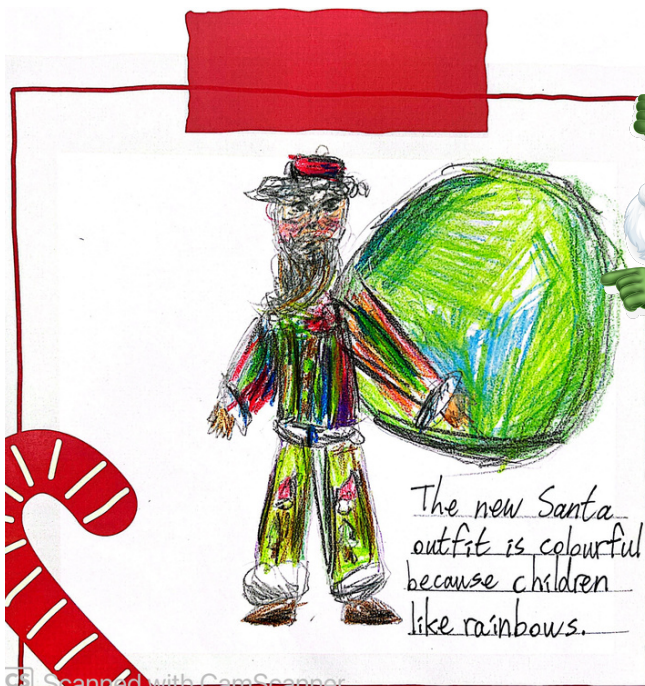 The new Santa
outfit is colourful
because children
like rainbows.
CS Scanned with CamScanner